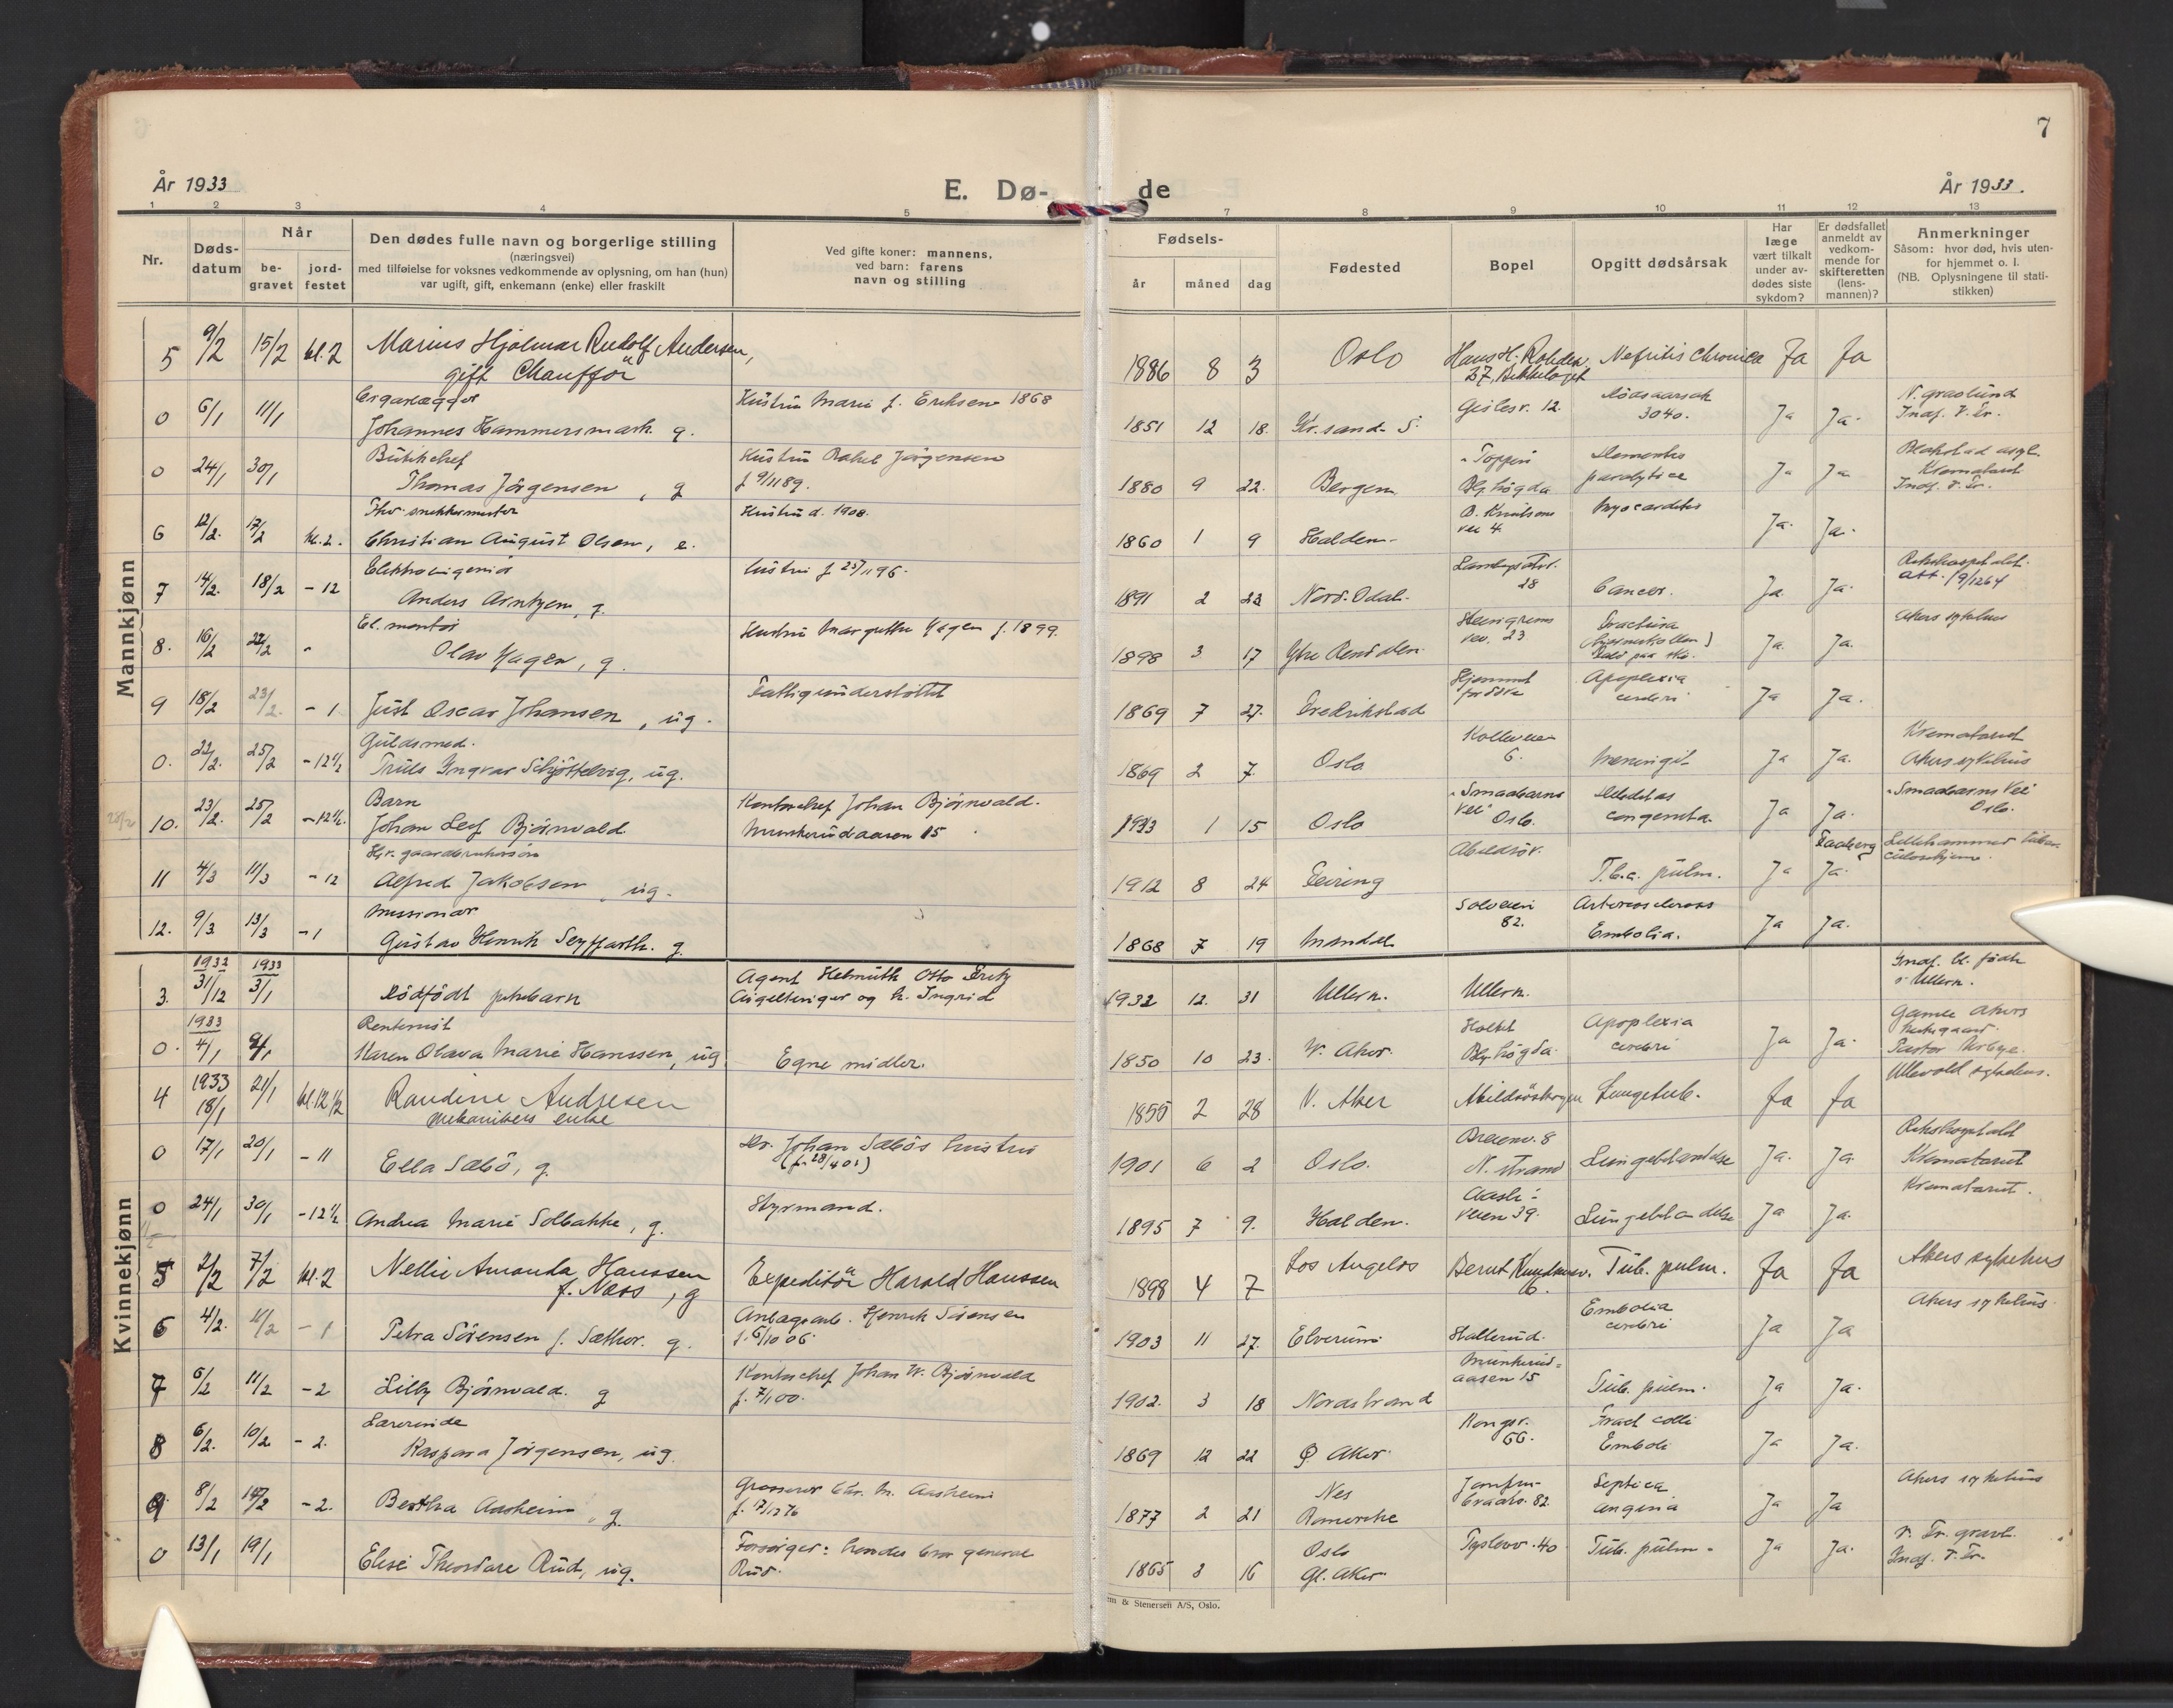 7
År 1933
E. Dø-
de
År 1933.
1 2 3 4 5 7 8 9 10 11 12 13
Nr.
Døds-
datum
Når
be-
gravet
jord-
festet
Den dødes fulle navn og borgerlige stilling
(næringsvei)
med tilføielse for voksnes vedkommende av oplysning, om han (hun)
var ugift, gift, enkemann (enke) eller fraskilt
Ved gifte koner: mannens,
ved barn: farens
navn og stilling
Fødsels-
år måned dag
Fødested
Bopel
Opgitt dødsårsak
Har
læge
vært tilkalt
under av-
dødes siste
sykdom?
Er dødsfallet
anmeldt av
vedkom-
mende for
skifteretten
(lens-
mannen)?
Anmerkninger
Såsom: hvor død, hvis uten-
for hjemmet o. l.
(NB. Oplysningene til stati-
stikken)
Mannkjønn
5 9/2 15/2 kl. 2 Marius Hjalmar Rudolf Andersen,
gift Chauffør
1886 8 3 Oslo
37, Bekkelaget
Nefritis chronica Ja Ja
0 6/1 11/1
Johannes Hammersmark. g.
Hustru Marie f. Eriksen 1868
1851 12 18. Kr.sand. S.
12.
Dødsaarsak
3040.
Ja Ja.
Indf. V. Tr.
0 24/1 30/1 Butikchef
Thomas Jörgensen, g
Hustru Rakel Jörgensen
f 9/11 89.
1880 9 22. Bergen
"Toppen
Bl. högda
Dementia
paralytica
Ja Ja
Blakstad asyl.
Krematoriet
Indf. V. Tr.
6 12/2. 17/2 kl. 2.
Christian August Olsen, e.
Hustru d. 1908.
1860 1 9 Halden.
B. Knutsens
vei 4.
Myocarditis
Ja. Ja.
7 14/2. 18/2 - 12 Elektroingeniör
Anders Arntzen, g.
hustru f 25/11 96.
1891 2 23 Nord-Odal.
28
Cancer.
Ja Ja.
Rikshospitalet.
8. 16/2 22/2 El. montör
Olav Hagen, g.
Hustru Margrethe Hagen f. 1899.
1898 3 17 Ytre Rendalen
vei. 23
Fractura
Ja Ja.
Akers sykehus
9 18/2 23/2. - 1 Just Oscar Johansen, ug.
Fattigunderstöttet
1869 7 27. Fredrikstad
Hjemmet
for Döve
Apoplexia
cerebri
Ja Ja.
0. 22/2. 25/2 - 12 1/2 Guldsmed.
Truls Ingvar Schjöttelvig, ug.
1869 2 7. Oslo
6.
Meningit
Ja Ja.
Krematoriet
Akers sykehus
10. 23/2. 25/2 - 12 1/2. Barn
Johan Leif Björnvald
Kontorchef Johan Björnvald.
Munkerudaasen 15
1933 1 15 Oslo
"Smaabarns
Vei" Oslo.
Debilitas
congenita.
Ja Ja.
"Smaabarns Vei"
Oslo.
11 4/3 11/3 - 12
Alfred Jakobsen, ug.
1912 8 24 Feiring
Abildsöv.
T.b.c. pulm.
Ja Ja.
Faaberg
Lillehammer tuber-
culosehjem.
12. 9/3 13/3 - 1 Missionær
Gustav Henrik Seyffarth. g.
1868 7 19 Mandal
Solveien
82.
Arteriosclerosis
Embolia.
Ja Ja.
Kvinnekjønn
3. 1932 31/12 1933 3/1 Dödfödt pikebarn
Agent Helmuth Otto Fritz
Aigeltinger og h. Ingrid
1932 12. 31 Ullern. Ullern.
Indf. bl. födte
i Ullern.
0. 1933 4/1 9/1 Rentenist
Karen Olava Marie Hanssen, ug
Egne midler.
1850 10 23. V. Aker.
Holtet
Bl. högda.
Apoplexia
cerebri
Ja Ja.
Gamle Akers
Kirkegaard.
4 1933 18/1 21/1 kl. 12 1/2 Randine Andresen
mekanikers enke
1855 2 28 V. Aker
Lungetub.
Ja Ja
Ullevold sykehus.
0 17/1 20/1 - 11 Ella Sæbö, g.
Dr. Johan Sæbös hustru
(f. 28/4 01)
1901 6 2 Oslo.
N. strand
Lungebetændelse
Ja. Ja.
Rikshospitalet
Krematoriet
0 24/1 30/1 - 12 1/2 Andrea Marie Solbakke, g.
Styrmand.
1895 7 9. Halden.
veien 39.
Lungebetændelse
Ja Ja.
Krematoriet.
5 2/2 7/2 kl. 2 Nellie Amanda Hanssen
f. Næss, g
Expeditör Harald Hanssen
1898 4 7 Los Angelos
6.
Tub. pulm.
Ja Ja
Akers sykehus
6 4/2. 11/2 - 1 Petra Sörensen f. Sæther. g.
Anlægsarb. Henrik Sörensen
f. 6/10 06.
1903 11 27. Elverum.
Hallerud.
Embolia
cerebri
Ja Ja
Akers sykehus
7 6/2 11/2 - 2 Lilly Björnvald. g
Kontorchef Johan W. Björnvald
f. 7/1 00.
1902. 3 18 Nordstrand
Munkerud-
aasen 15
Tub. pulm.
Ja Ja.
8 6/2. 10/2 - 2. Lærerinde
Kaspara Jörgensen, ug.
1869 12 22 Ö Aker
Kongsv.
66.
Fract colli
Emboli
Ja Ja.
9 8/2 14/2 - 2. Bertha Aasheim, g.
Grosserer Chr. M. Aasheim
1877 2 21 Nes
Romerike
82.
Septica
angina
Ja Ja
Akers sykehus
0 13/1 19/1 Elise Theodare Rud, ug.
Forsörget: hendes bror general
Rud.
1865 3 16 Oslo
Gl. Aker
40
Tub. pulm.
Ja Ja.
V. Tr. gravl.
Indf. V. Tr.
& Stenersen A/S, Oslo.